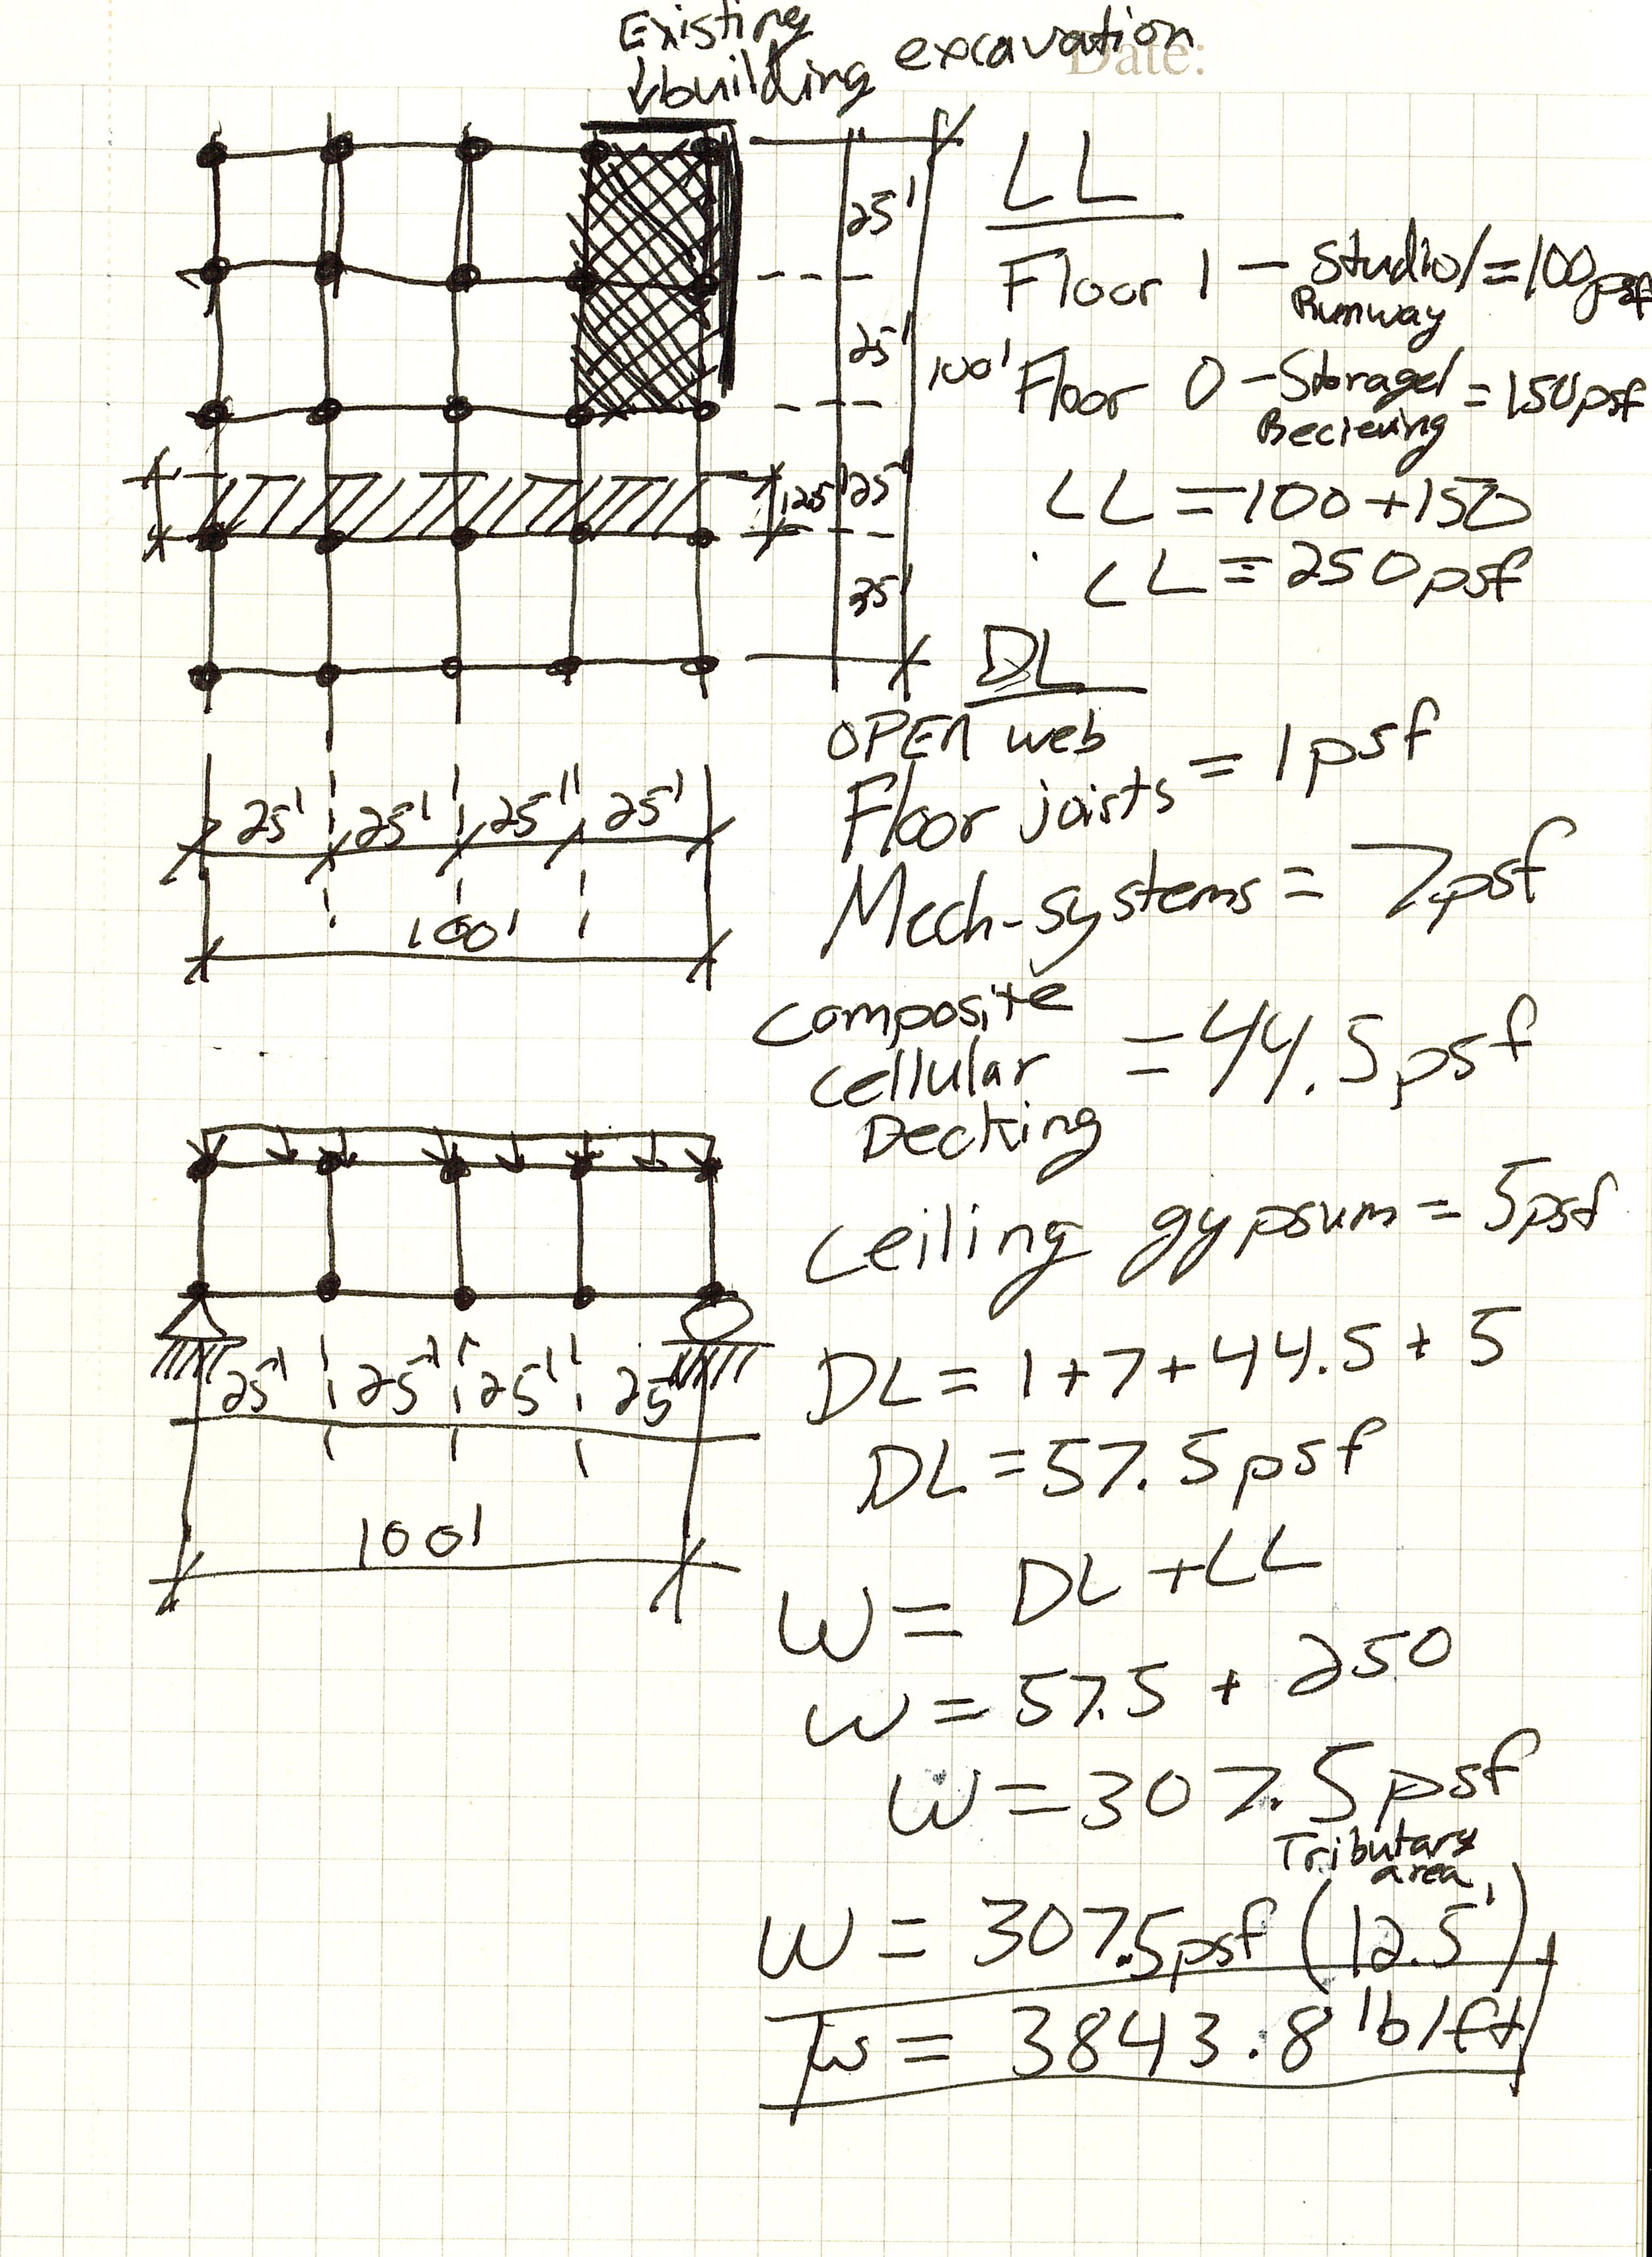 Existing
building excavation
Date:
25'
25'
100'
12.5'
25'
25'
25' 25' 25' 25'
100'
25' 25' 25' 25'
100'
LL
Floor 1 - Studio/ = 100psf
Runway
Floor 0 - Storage/ = 150psf
Recieving
LL = 100 + 150
LL = 250psf
DL
OPEN web
Floor joists = 1psf
Mech-systems = 7psf
Composite
cellular = 44.5psf
Decking
Ceiling gypsum = 5psf
DL = 1 + 7 + 44.5 + 5
DL = 57.5psf
W = DL + LL
W = 57.5 + 250
W = 307.5psf
Tributary
area
W = 307.5psf (12.5')
W = 3843.8 lb/ft